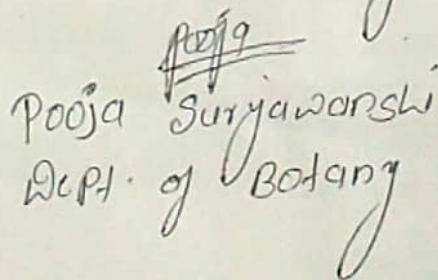 Pooja
Pooja Suryawanshi
Dept. of Botany